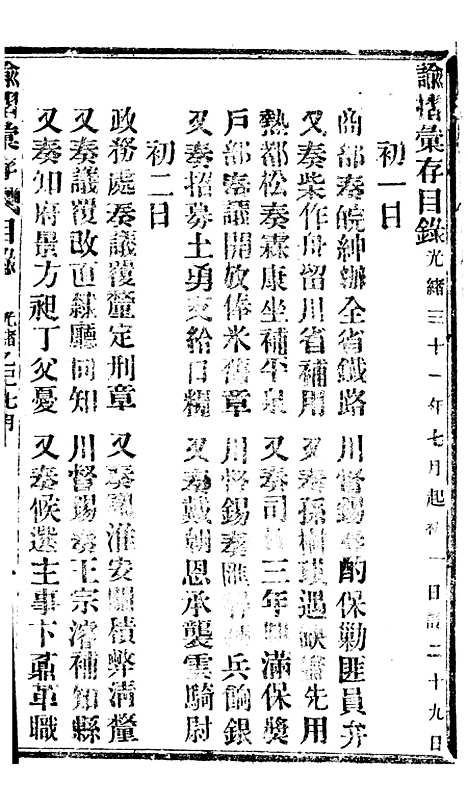 諭摺彙存目錄 光緒三十一年七月起初一日訖二十九日
初一日
商部奏皖紳辦全省鐵路 川督錫奏酌保勦匪員弁
又奏柴作舟留川省補用 又奏孫遇缺儘先用
熱都松奏霖康坐補平泉 又奏司三年滿保獎
戶部奏議開放俸米舊章 川督錫奏匯兵餉銀
又奏招募土勇支給口糧 又奏戴朝恩承襲雲騎尉
初二日
政務處奏議覆釐定刑章 又奏淮安關積弊清釐
又奏議覆改直隸廳同知 川督錫奏王宗濬補知縣
又奏知府景方昶丁父憂 又奏候選主事卞鼒革職
諭摺彙存目錄 光緒乙巳七月